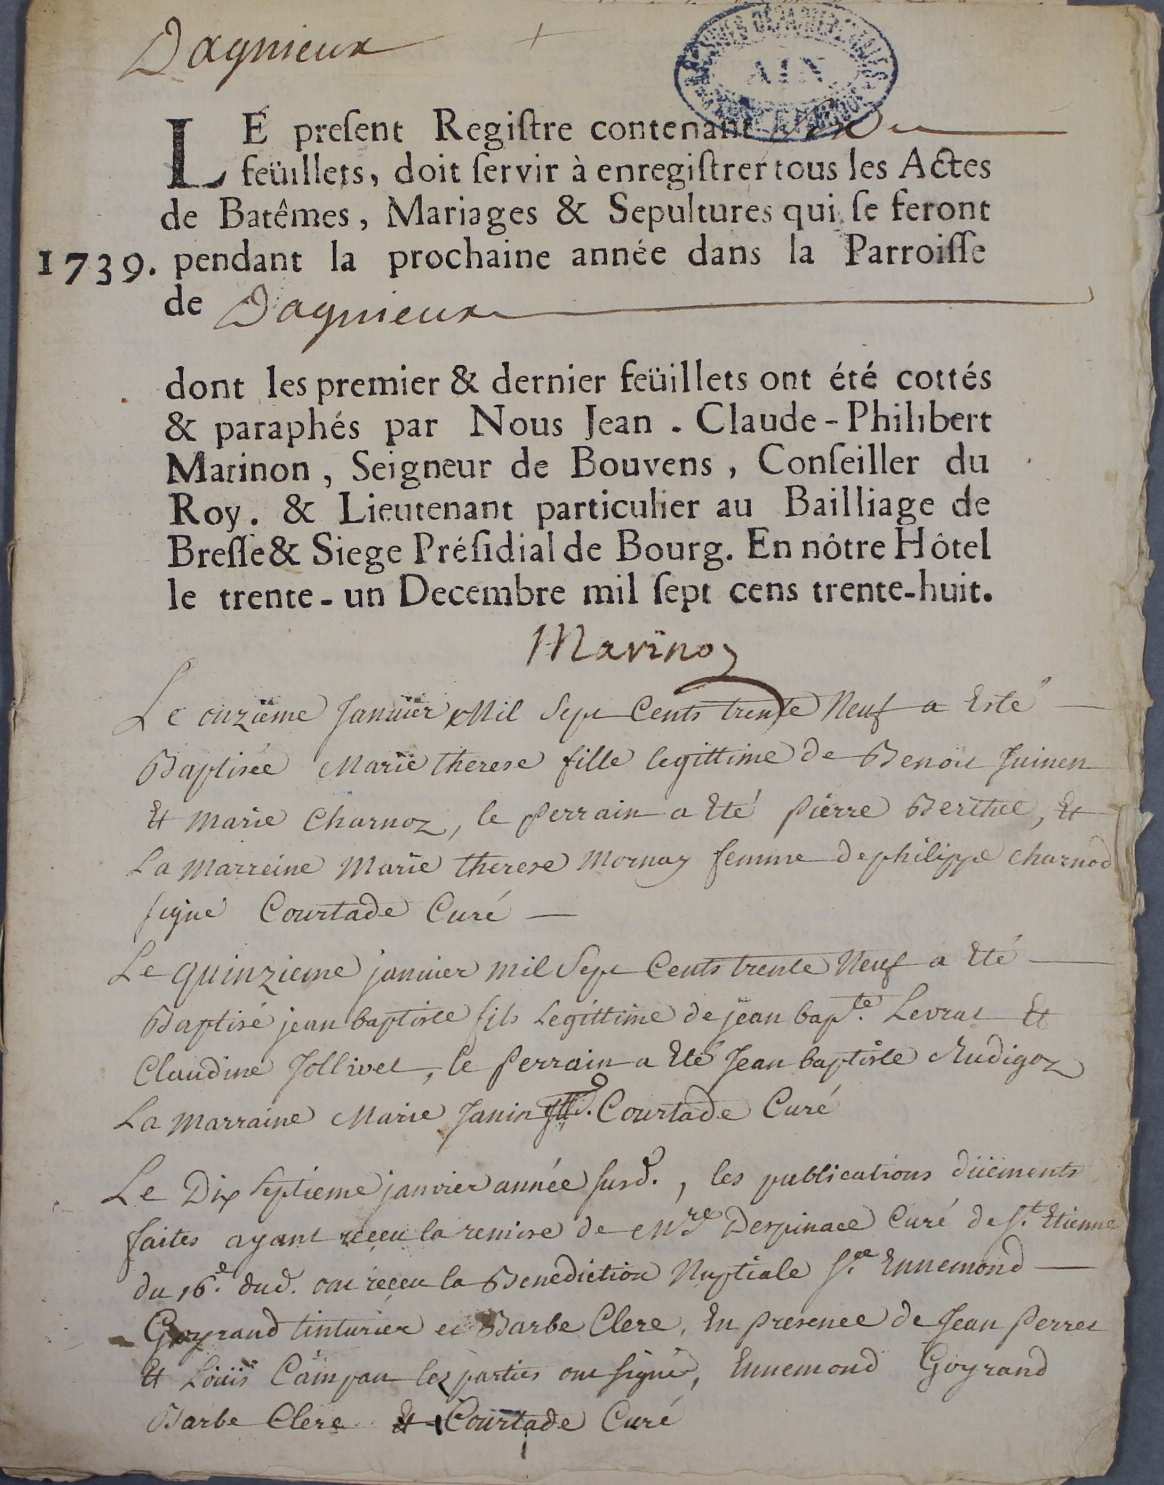 Dagnieux
ARCHIVES DÉPARTEMENTALES
AIN
LE preſent Regiſtre contenant
feüillets, doit ſervir à enregiſtrer tous les Actes
de Batêmes, Mariages & Sepultures qui ſe feront
1739. pendant la prochaine année dans la Parroiſſe
de Dagnieux
dont les premier & dernier feüillets ont été cottés
& paraphés par Nous Jean-Claude-Philibert
Marinon, Seigneur de Bouvens, Conſeiller du
Roy. & Lieutenant particulier au Bailliage de
Breſſe & Siege Préſidial de Bourg. En nôtre Hôtel
le trente-un Decembre mil ſept cens trente-huit.
Marinon
Le onzïéme Janvïer Mil Sept Cents trente Neuf a Esté
Baptisée Marïe therese fille legittime de Benoit Juinen
Et Marie Charnoz, le perrain a Eté pierre Berthet, Et
La Marreine Marie therese Mornay femme de philippe Charnod
signé Courtade Curé
Le quinzieme janvier mil Sept Cents trente Neuf a Eté
Baptisé jean baptiste fils Legittime de jean bapte. Levrat Et
Claudine Jollivet, le perrain a Eté Jean baptiste Rudigoz
La Marraine Marie Janin Courtade Curé
Le Dix Septieme janvier année susd., les publications düements
faites ayant receu la remise de Mre Despinace Curé de St. Etienne
du 16e. dud. ont receu la Benediction Nuptiale Sr. Ennemond
Goyrand tinturier et Barbe Clere, En presence de Jean Perret
Et Louis Campan les parties ont signé, Ennemond Goyrand
Barbe Clere Et Courtade Curé